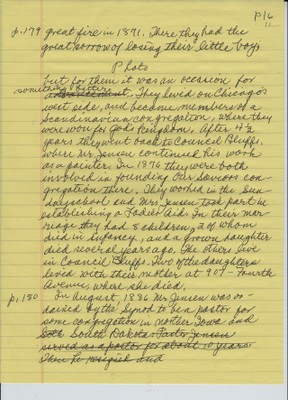 P16
11
p.179 great fire in 1871. There they had the
great sorrow of losing their little boy.
Photo
but for them it was an occasion for
something better
excitement. They lived on Chicago's
west side, and became members of a
Scandinavian congregation, where they
were won for God's Kingdom. After 4½
years they went back to Council Bluffs,
where Mr. Jensen continued his work
as a painter. In 1876 they were both
involved in founding Our Saviors con-
gregation there. They worked in the Sun-
day school and Mrs. Jensen took part in
establishing a Ladies Aid. In their mar-
riage they had 8 children, 2 of whom
died in infancy, and a grown daughter
died several years ago. The others live
in Council Bluffs. Two of the daughters
lived with their mother at 907 - Fourth
Avenue, where she died.
p.180 In August, 1886 Mr. Jensen was or-
dained by the Synod to be a pastor for
some congregation in northern Iowa and
South Dakota. Pastor Jensen
served as a pastor for about 10 years
then he resigned and